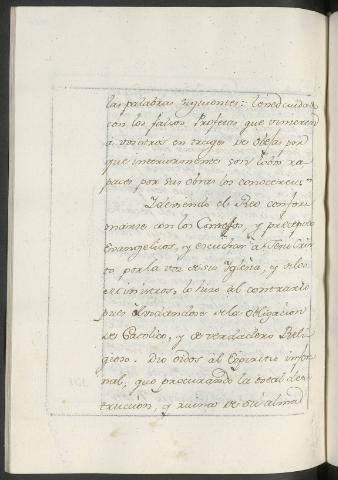 las palabras siguientes: tened cuidado
con los falsos Profetas que vinieren
a vosotros en trages de obejas por
que interiormente son lobos ra
paces por sus obras los conocereis"
Y deviendo el Reo confor
marse con los Consejos, y preceptos
Evangelicos, y escuchar a Jesu Cris
to por la voz de su Yglesia, y de los
Ministros, lo hizo al contrario
pues olvidandose de la obligacion
de Catolico, y de verdadero Reli
gioso. Dio oidos al Espiritu infer
nal, que procurando la total des
truccion, y ruina de su alma